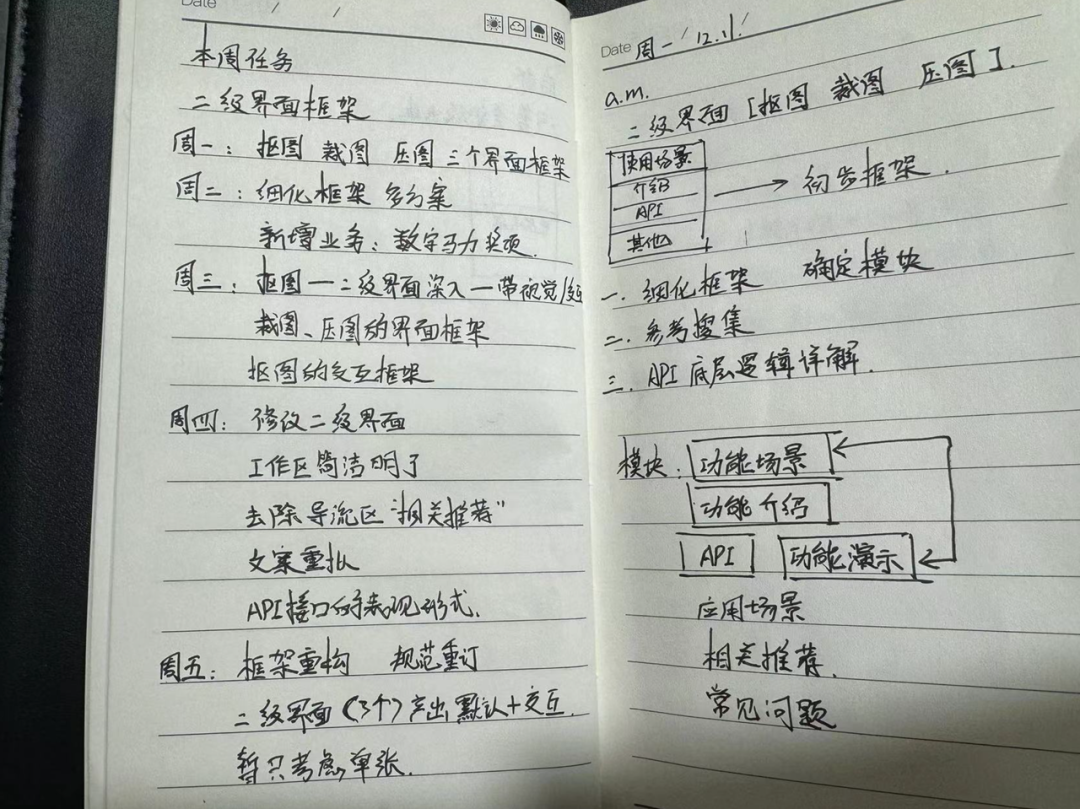 Date / /
本周任务
二级界面框架
周一：抠图 裁图 压图 三个界面框架
周二：细化框架 多方案
新增业务：数字马力奖项.
周三：抠图一二级界面深入一带视觉/交互
裁图、压图的界面框架
抠图的交互框架
周四：修改二级界面
工作区简洁明了
去除导流区"相关推荐"
文案重拟
API接口的表现形式.
周五：框架重构 规范重订
二级界面(3个)产出默认+交互.
暂只考虑单张.
Date 周一 / 12.1 /
a.m.
二级界面 [抠图 裁图 压图].
使用场景
介绍
API
其他
初步框架.
一. 细化框架 确定模块
二. 参考搜集
三. API 底层逻辑详解.
模块: 功能场景
功能介绍
API 功能演示
应用场景
相关推荐.
常见问题